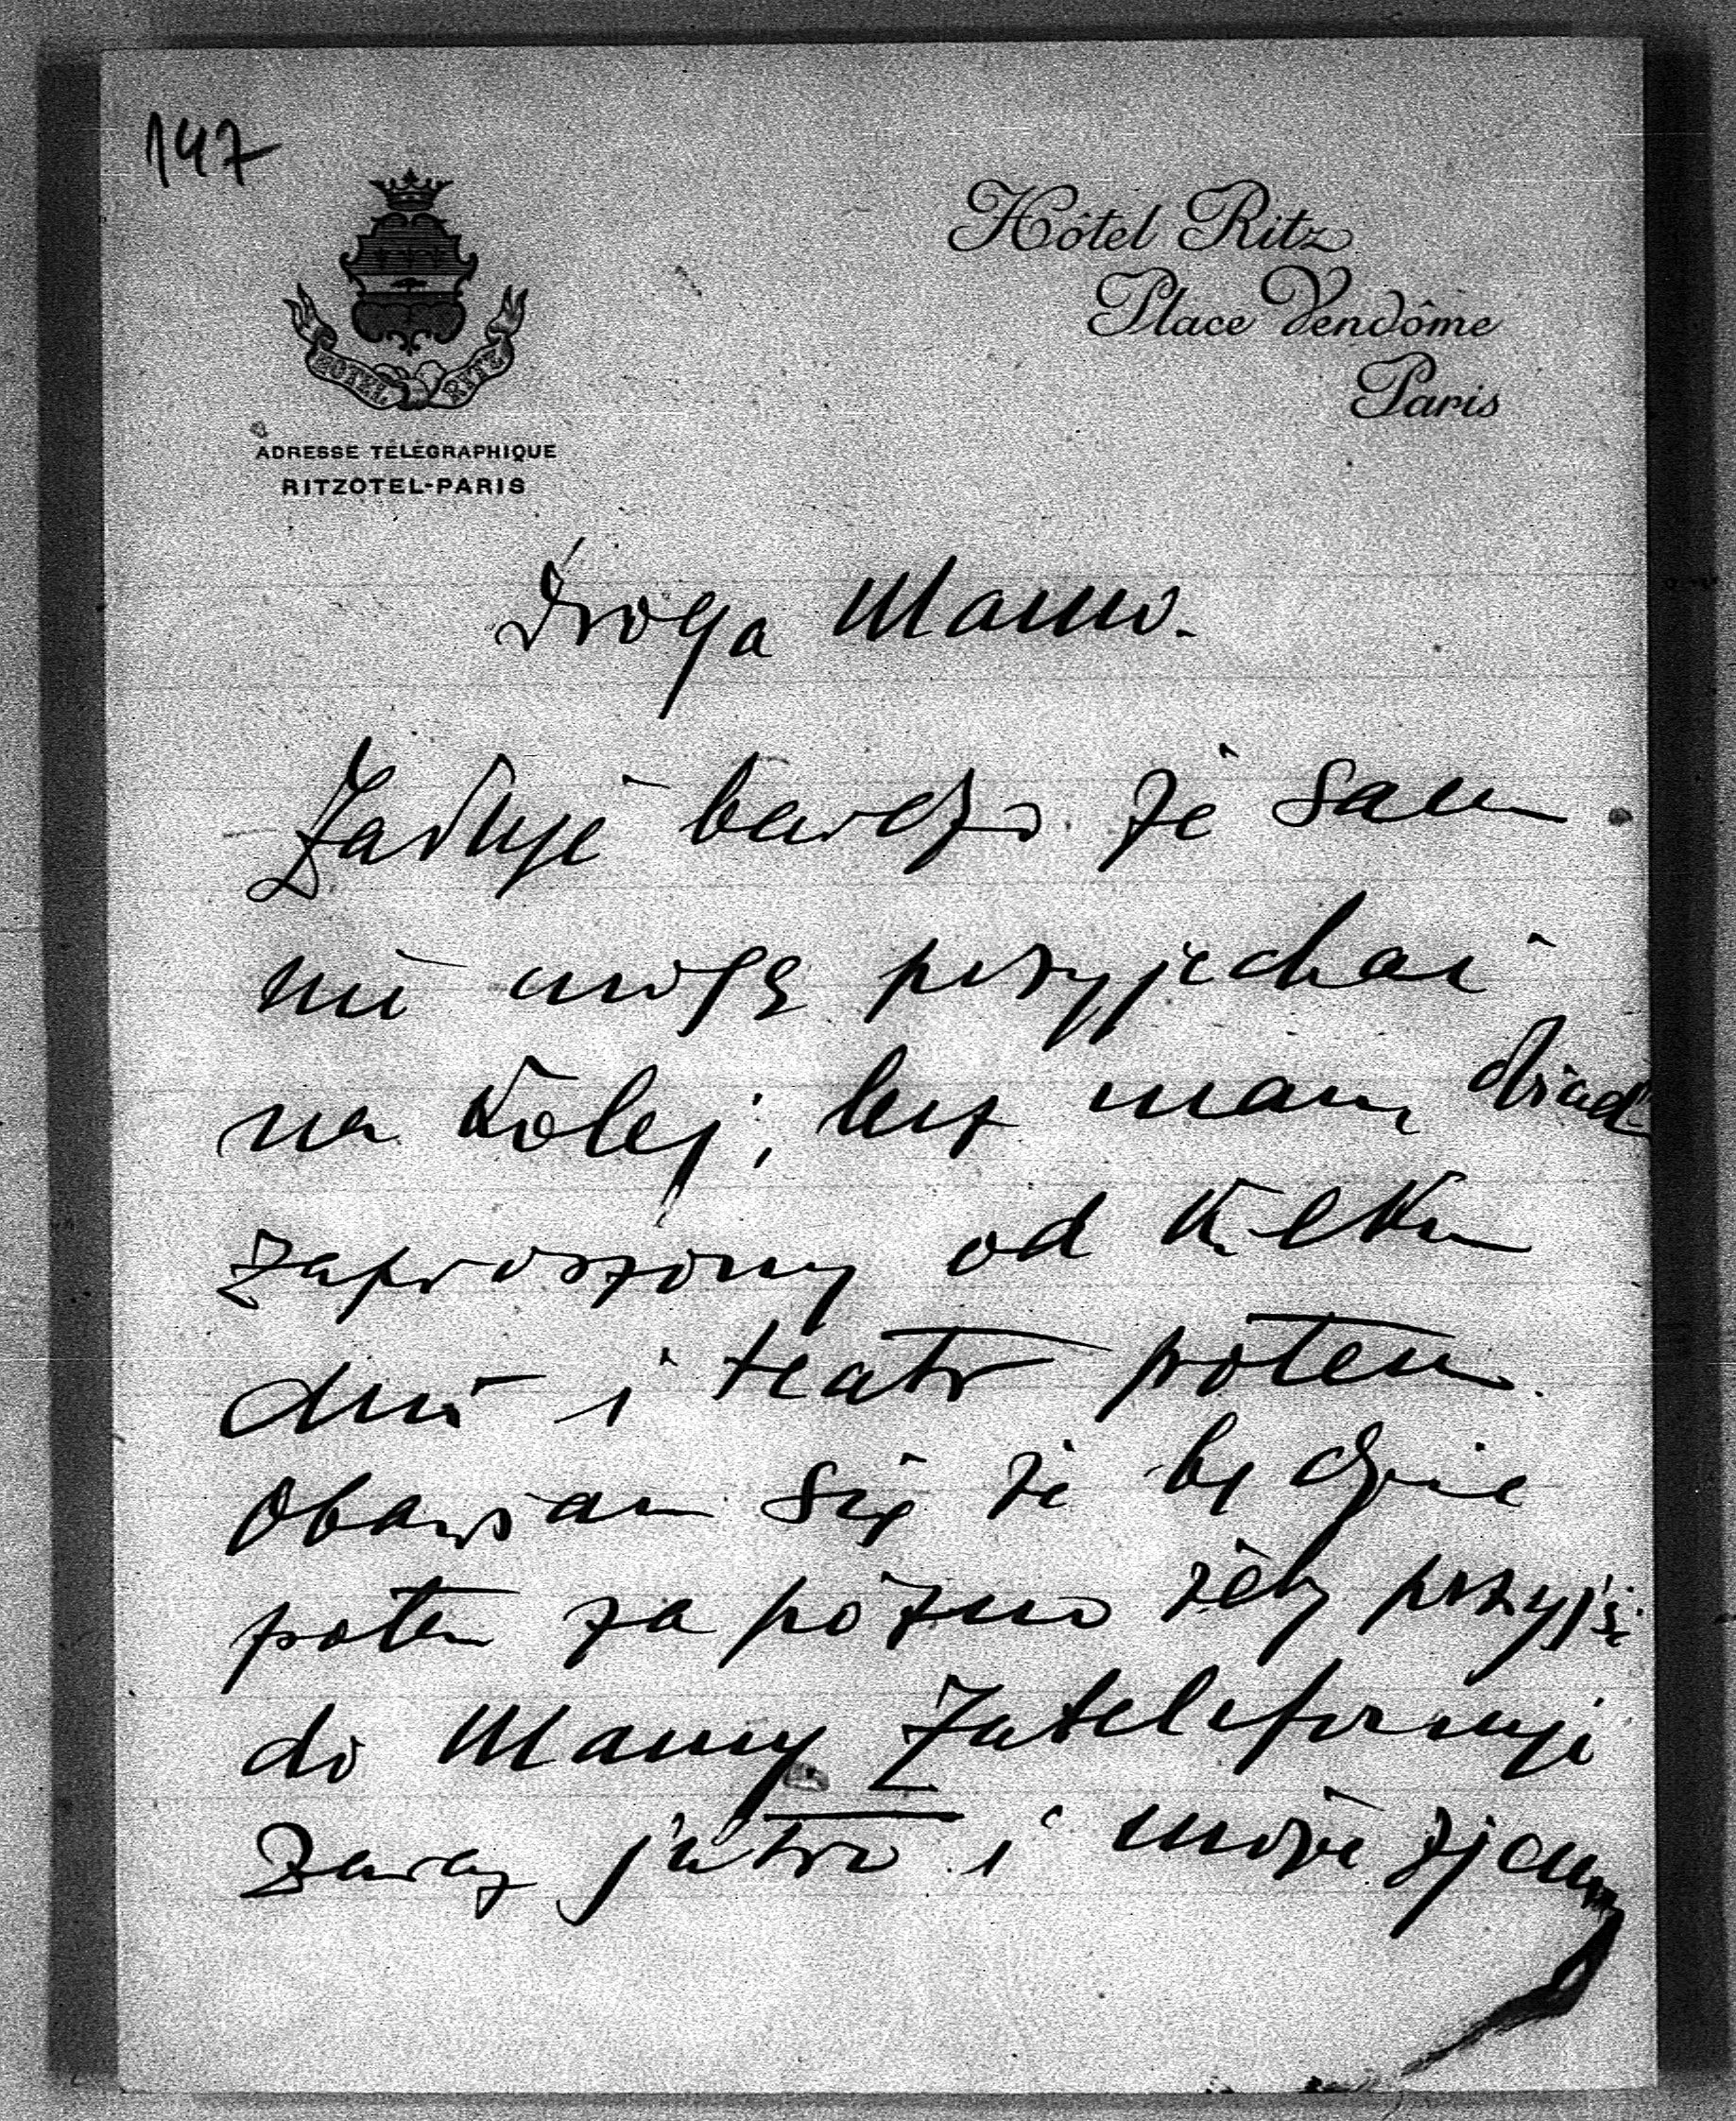 147
Hôtel Ritz
Place Vendôme
Paris
HOTEL RITZ
ADRESSE TÉLÉGRAPHIQUE
RITZOTEL-PARIS
Droga Mamo.
Żałuję bardzo że sam
nie mogę przyjechać
na kolej, lecz mam obiad
zaproszony od kilku
dni i teatr potem.
Obawiam się że będzie
potem za późno żeby przyjść
do Mamy Zatelefonuję
zaraz jutro i może zjemy